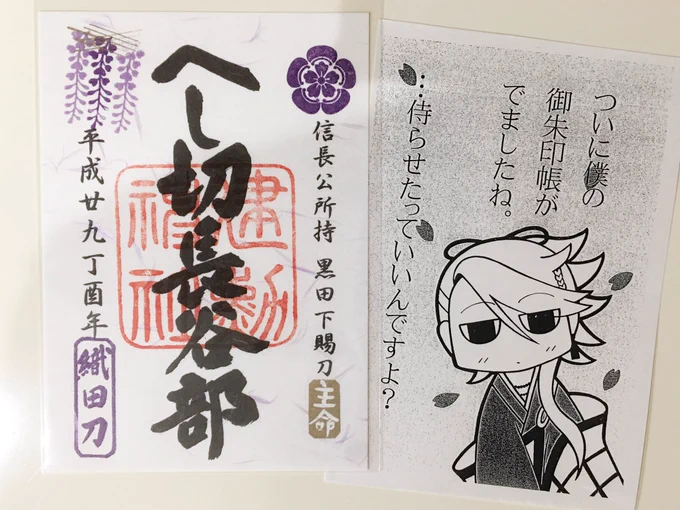 信長公所持 黒田下賜刀
主命
へし切長谷部
建勲
神社
平成廿九丁酉年
織田刀
ついに僕の
御朱印帳が
でましたね。
…侍らせたっていいんですよ?